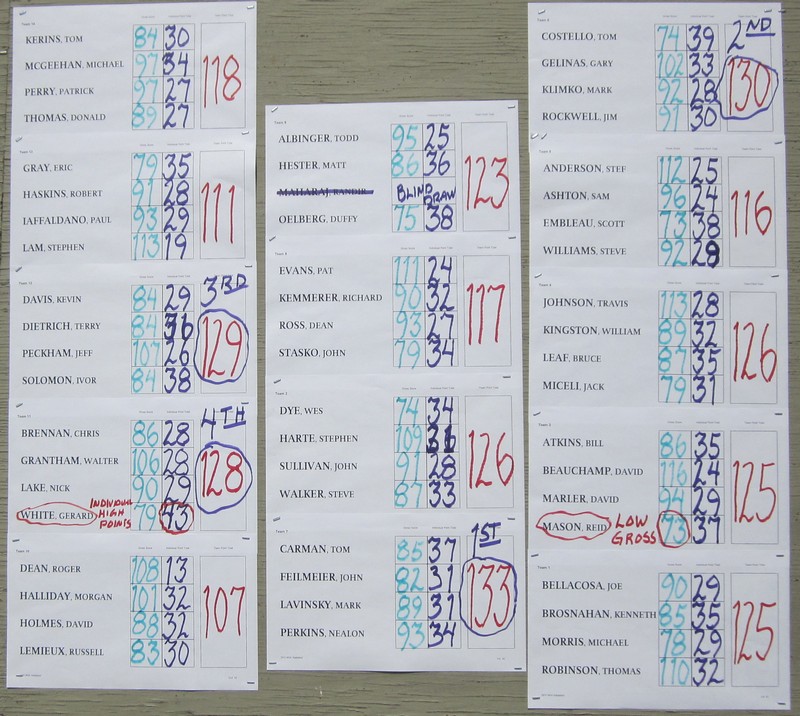 KERINS, TOM 84 30
MCGEEHAN, MICHAEL 97 34
PERRY, PATRICK 97 27
THOMAS, DONALD 89 27
118
GRAY, ERIC 79 35
HASKINS, ROBERT 91 28
IAFFALDANO, PAUL 93 29
LAM, STEPHEN 113 19
111
DAVIS, KEVIN 84 29
DIETRICH, TERRY 84 36
PECKHAM, JEFF 107 26
SOLOMON, IVOR 84 38
3RD
129
Team 11
BRENNAN, CHRIS 86 28
GRANTHAM, WALTER 106 28
LAKE, NICK 90 29
WHITE, GERARD INDIVIDUAL HIGH POINTS 79 43
4TH
128
DEAN, ROGER 108 13
HALLIDAY, MORGAN 101 32
HOLMES, DAVID 88 32
LEMIEUX, RUSSELL 83 30
107
ALBINGER, TODD 95 25
HESTER, MATT 86 36
MAHARAJ, RANDIR BLIND DRAW
OELBERG, DUFFY 75 38
123
EVANS, PAT 111 24
KEMMERER, RICHARD 90 32
ROSS, DEAN 93 27
STASKO, JOHN 79 34
117
DYE, WES 74 34
HARTE, STEPHEN 109 31
SULLIVAN, JOHN 91 28
WALKER, STEVE 87 33
126
Team 7
CARMAN, TOM 85 37
FEILMEIER, JOHN 82 31
LAVINSKY, MARK 89 31
PERKINS, NEALON 93 34
1ST
133
COSTELLO, TOM 74 39
GELINAS, GARY 102 33
KLIMKO, MARK 92 28
ROCKWELL, JIM 91 30
2ND
130
ANDERSON, STEF 112 25
ASHTON, SAM 96 24
EMBLEAU, SCOTT 73 38
WILLIAMS, STEVE 92 29
116
JOHNSON, TRAVIS 113 28
KINGSTON, WILLIAM 89 32
LEAF, BRUCE 87 35
MICELI, JACK 79 31
126
ATKINS, BILL 86 35
BEAUCHAMP, DAVID 116 24
MARLER, DAVID 94 29
MASON, REID LOW GROSS 73 37
125
BELLACOSA, JOE 90 29
BROSNAHAN, KENNETH 85 35
MORRIS, MICHAEL 78 29
ROBINSON, THOMAS 110 32
125